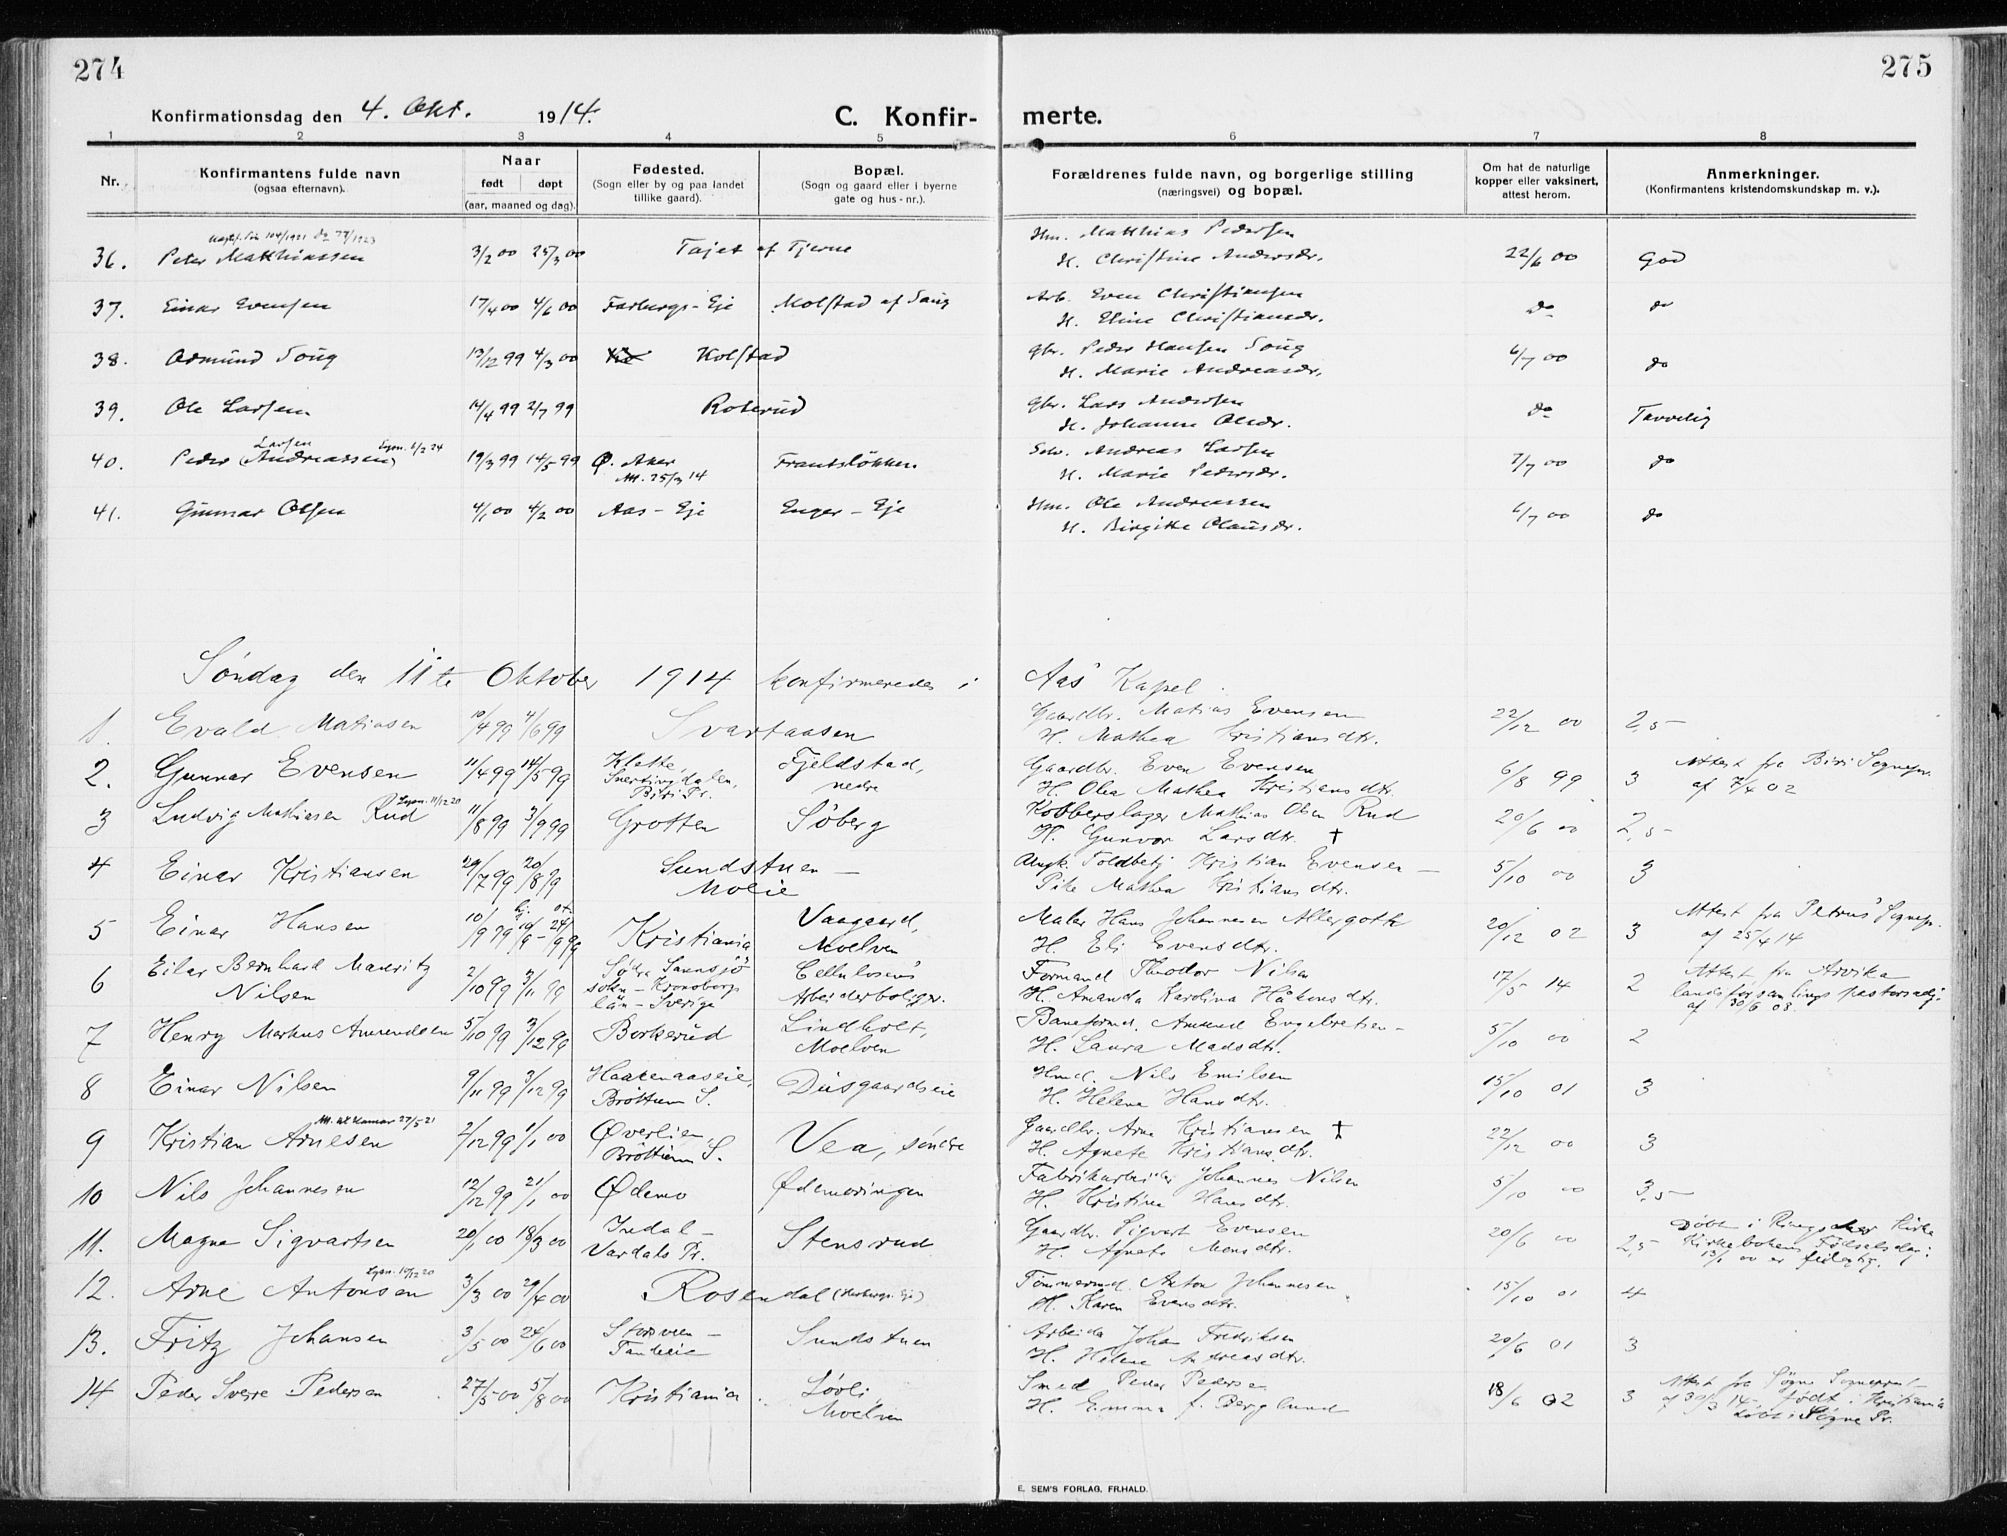 274
275
Konfirmationsdag den 4. Okt. 1914.
C. Konfir-
merte.
1 2 3 4 5 6 7 8
Nr.
Konfirmantens fulde navn
(ogsaa efternavn).
Naar
født døpt
(aar, maaned og dag).
Fødested.
(Sogn eller by og paa landet
tillike gaard).
Bopæl.
(Sogn og gaard eller i byerne
gate og hus-nr.).
Forældrenes fulde navn, og borgerlige stilling
(næringsvei) og bopæl.
Om hat de naturlige
kopper eller vaksinert,
attest herom.
Anmerkninger.
(Konfirmantens kristendomskundskap m. v.).
104/1921 do 77/1923
Hm. Matthias Pedersen
36. Peter Matthiassen 3/2 00 25/3 00 Tajet af Tjerne
H. Christine Andersdr. 22/6 00 God
37. Einar Evensen 17/4 00 4/6 00 Farbergs-Eje Molstad af Saug
Arb. Even Christiansen
H. Eline Christiansdr. do do
38. Asmund Soug 13/12 99 4/3 00 Kolstad
Gbr. Peder Hansen Soug
H. Marie Andreasdr. 6/7 00 do
39. Ole Larsen 14/4 99 2/7 99 Roterud
Gbr. Lars Andersen
H. Johanne Olsdr. do Tarvelig
Larsen Lysn. 6/2 24
40. Peder (Andreassen) 19/3 99 14/5 99 Ø. Aker Frantsløkken
Att. 25/3 14
Selv. Andreas Larsen
H. Marie Pedersdr. 7/7 00 do
41. Gunnar Olsen 4/1 00 4/2 00 Aas-Eje Enger-Eje
Hm. Ole Andreassen
H. Birgitte Olausdr. 6/7 00 do
Søndag den 11te Oktober 1914 konfirmeredes i Aas Kapel.
1. Evald Matiasen 10/4 99 4/6 99 Svartaasen
Gaardbr. Matias Evensen
H. Mathea Kristiansdtr. 22/12 00 2,5
2. Gunnar Evensen 11/4 99 14/5 99 Klette, Snertingdalen, Biri Pr. Fjeldstad, nedre
Gaardbr. Even Evensen
H. Olea Mathea Kristiansdtr. 6/8 99 3 Attest fra Biri Sognepr.
af 7/4 02
Lysn. 11/12 20
3 Ludvig Mathiasen Rud 11/8 99 3/9 99 Grotten Søberg
Kobberslager Mathias Olsen Rud
H. Gunvor Larsdtr. † 20/6 00 2,5
4 Einar Kristiansen 29/7 99 20/8 99 Sundstuen – Moeie
Ungk. Toldbetj. Kristian Evensen –
Pike Mathea Kristiansdtr. 5/10 00 3
5 Einar Hansen 10/9 99 Kristiania Vaagaard, Moelven
Maler Hans Johannesen Allergoth
H. Eli Evensdtr. 20/12 02 3 Attest fra Petrus' Sognepr.
af 25/4 14
6 Eilar Bernhard Mauritz
Nilsen 2/10 99 3/11 99 Södra Sannsjö soken – Kronobergs län – Sverige Cellulosens Arbeiderboliger.
Formand Theodor Nilsen
H. Amanda Karolina Håkansdtr. 17/5 14 2 Attest fra Arvika
landsförsamlings pastorsexp.
af 30/6 08.
7 Henry Markus Amundsen 5/10 99 3/12 99 Borkerud Lindholt, Moelven
Baneformd. Amund Engebretsen –
H. Laura Madsdtr. 5/10 00 2
8 Einar Nilsen 9/11 99 3/12 99 Haakenaaseie, Brøttum S. Diisgaardseie
Hmd. Nils Emilsen
H. Helena Hansdtr. 15/10 01 3
Att. til Hamar 27/5 21
9 Kristian Arnesen 2/12 99 1/1 00 Øverlien, Brøttum S. Vea, søndre
Gaardbr. Arne Kristiansen †
H. Agnete Kristiansdtr. 22/12 00 3
10 Nils Johannesen 12/12 99 21/1 00 Ødemo Ødemoringen
Fabrikarbeider Johannes Nilsen
H. Kristine Hansdtr. 5/10 00 3,5
11. Magne Sigvartsen 20/1 00 18/3 00 Inndal – Vardals Pr. Stensrud
Gaardbr. Sigvart Evensen
H. Agnete Monsdtr. 20/6 00 2,5 Døbt i Ringsaker Kirke
Kirkebokens Fødselsdag:
13/1 00 er feilagtig.
Lysn. 10/12 20
12. Arne Antonsen 3/3 00 29/4 00 Rosendal (Herbergs. Eje)
Tømmermd. Anton Johannesen
H. Karen Evensdtr. 15/10 01 4
13. Fritz Johansen 3/5 00 24/6 00 Storsveen – Tandeeie Sundstuen
Arbeider Johan Fredriksen
H. Helene Andreasdtr. 20/6 01 3
14 Peder Sverre Pedersen 27/5 00 5/8 00 Kristiania Løvli Moelven
Smed Peder Pedersen
H. Emma f. Berglund 18/6 02 3 Attest fra Søgne Sogneprest
af 30/3 14, født i Kristiania
døbt i Søgne Pr.
E. SEM'S FORLAG, FR.HALD.